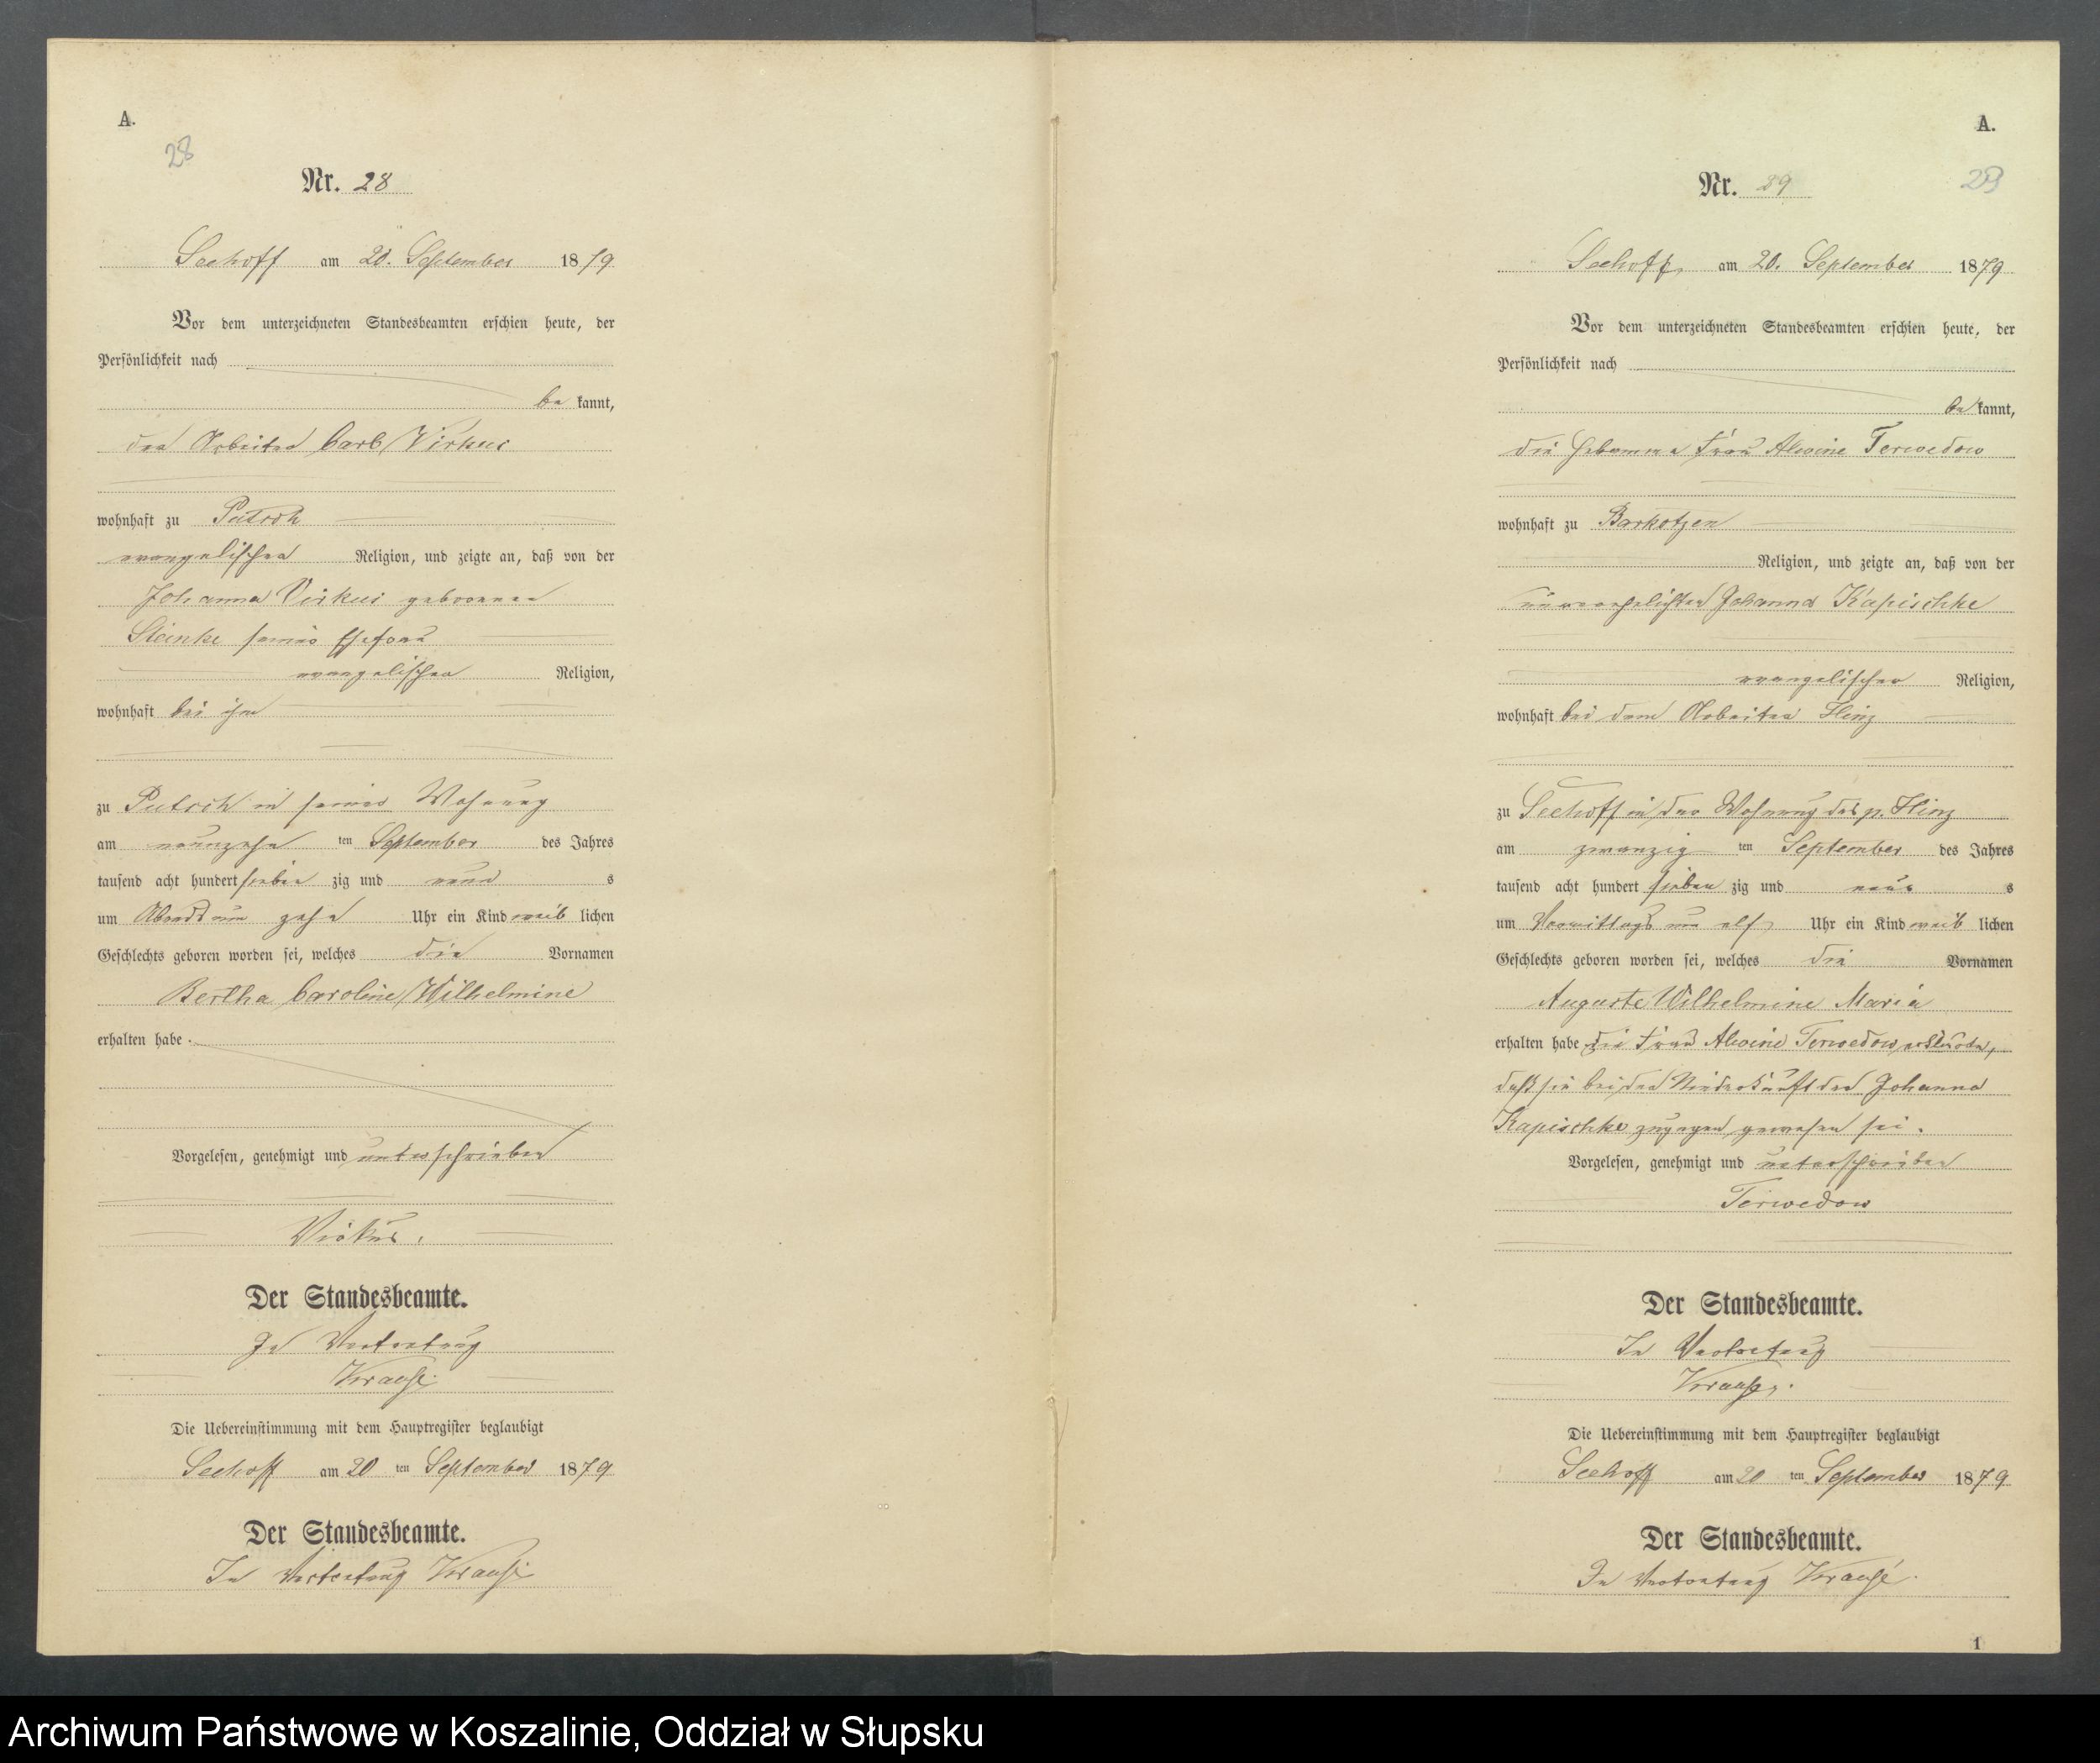 A.
28
Nr. 28
Seehoff am 20. September 1879
Vor dem unterzeichneten Standesbeamten erschien heute, der
Persönlichkeit nach
be kannt,
der Arbeiter Carl Virkus
wohnhaft zu Putsch
evangelischer Religion, und zeigte an, daß von der
Johanna Virkus geborenen
Steinke seiner Ehefrau
evangelischer Religion,
wohnhaft bei ihm
zu Putsch in seiner Wohnung
am neunzehn ten September des Jahres
tausend acht hundert sieben zig und neun s
um Abends um zehn Uhr ein Kind weib lichen
Geschlechts geboren worden sei, welches die Vornamen
Bertha Caroline Wilhelmine
erhalten habe.
Vorgelesen, genehmigt und unterschrieben
Virkus.
Der Standesbeamte.
In Vertretung
Krause.
Die Uebereinstimmung mit dem Hauptregister beglaubigt
Seehoff am 20 ten September 1879
Der Standesbeamte.
In Vertretung Krause
A.
29
Nr. 29
Seehoff, am 20. September 1879
Vor dem unterzeichneten Standesbeamten erschien heute, der
Persönlichkeit nach
be kannt,
die Hebamme Frau Alwine Terwedow
wohnhaft zu Barkotzen
Religion, und zeigte an, daß von der
unverehelichten Johanna Kapischke
evangelischer Religion,
wohnhaft bei dem Arbeiter Hinz
zu Seehoff in der Wohnung des p. Hinz
am zwanzig ten September des Jahres
tausend acht hundert sieben zig und neun s
um Vormittags um elf Uhr ein Kind weib lichen
Geschlechts geboren worden sei, welches die Vornamen
Auguste Wilhelmine Maria
erhalten habe die Frau Alwine Terwedow erklärte,
daß sie bei der Niederkunft der Johanna
Kapischke zugegen gewesen sei.
Vorgelesen, genehmigt und unterschrieben
Terwedow
Der Standesbeamte.
In Vertretung
Krause.
Die Uebereinstimmung mit dem Hauptregister beglaubigt
Seehoff am 20 ten September 1879
Der Standesbeamte.
In Vertretung Krause.
1
Archiwum Państwowe w Koszalinie, Oddział w Słupsku